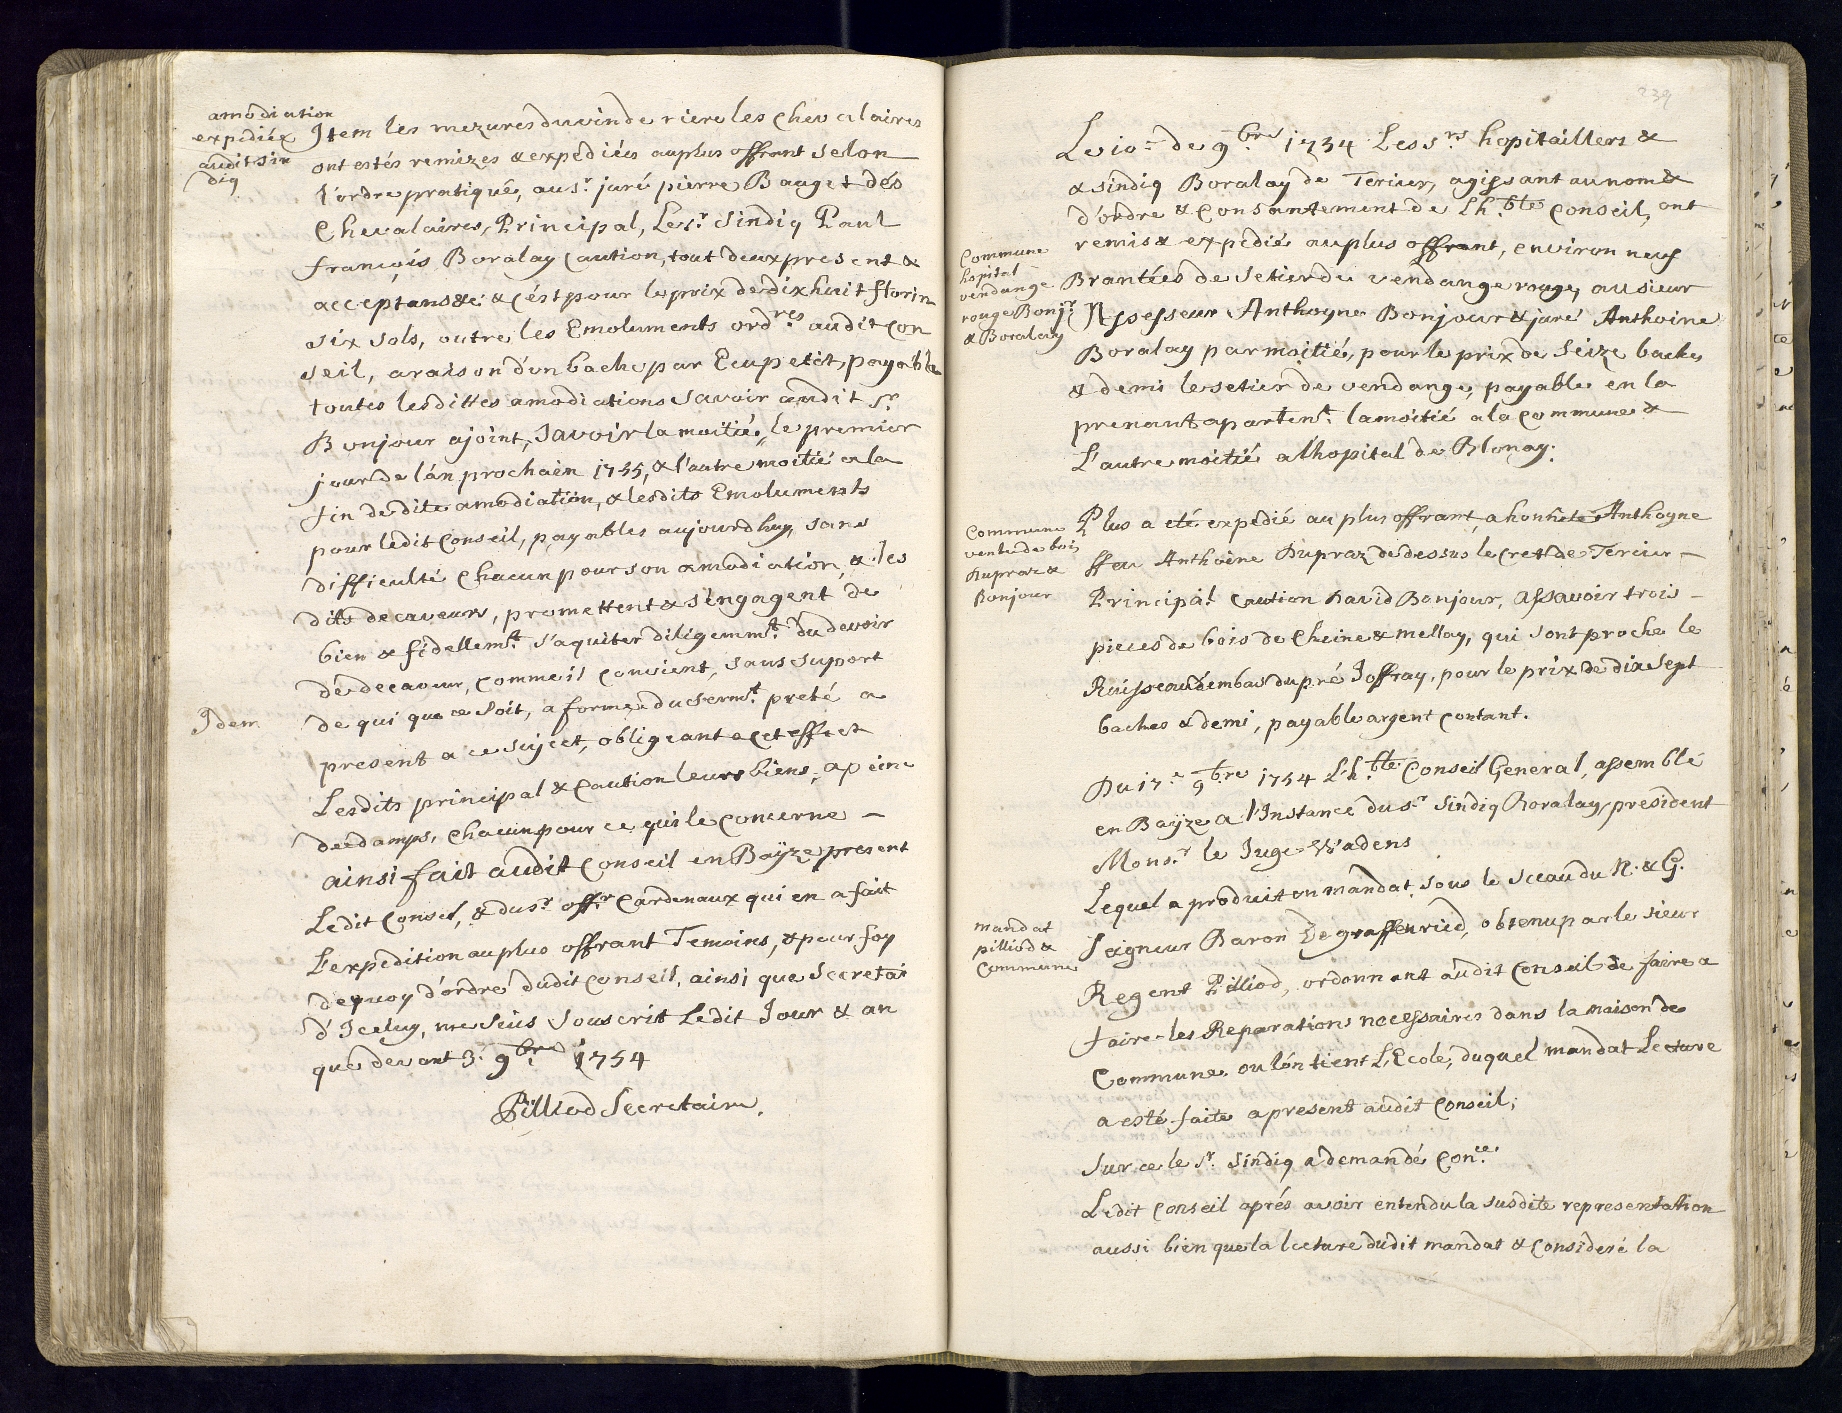 amodiation
expediéé
audit sin
diq
Item les mezures du vin de riere les Chevalaires
ont estés remizes & expediées au plus offrant selon
l'ordre pratiqué, au sr. juré pierre Bauget dés
Chevalaires, Principal, Le sr. Sindiq Paul
francois Boralay Caution, tout deux present &
acceptans &c: & c'ést pour le prix de dix huit florin
six sols, outre les Emoluments ordres audit Con
seil, a raison d'un bache par Ecu petit, payable
toutes lesdittes amodiations savoir audit sr.
Bonjour ajoint, savoir la moitié, le premier
jour de lán prochain 1755, & l'autre moitié a la
fin de dite amodiation, & lesdits Emoluments
pour ledit Conseil, payables aujourdhuy, sans
difficulté Chacun pour son amodiation, & les
dits decaveurs, promettent & s'engagent de
bien & fidellemt. s'aquiter diligemmt. du devoir
dé decaveur, comme il convient, sans suport
Idem
de qui que ce soit, a forme du sermt. preté a
present a ce sujet, obligeant a cet effect
Lesdits principal & Caution leurs biens, a peine
de damps, Chacun pour ce qui le concerne –
ainsi fait audit Conseil en Baÿze present
Ledit Conseil, & du sr. offr. Cardenaux qui en a fait
L'expedition au plus offrant Temoins, & pour foy
de quoy d'ordre dudit Conseil, ainsi que Secretai
d'Iceluy, me suis souscrit Ledit Jour & an
que devant 3e. 9bre. 1754
Pilliod Secretaire.
239
Le 10e. de 9bre 1754 Les srs. hopitaillers &
& sindiq Boralay de Tercier, agissant au nom &
d'ordre & Consantement de Lh.ble Conseil, ont
remis & expedié au plus offrant, environ neuf
Commune
hopital
vendange
rouge Bonjr.
& Boralay
Brantées de setier de vendange rouge, au sieur
Assesseur Anthoyne Bonjour & juré Anthoine
Boralay par moitié, pour le prix de Seize baches
& demi le setier de vendange, payable en la
prenant apartent. la moitié a la Commune &
L'autre moitié a lhopital de Blonay.
Commune
vente de bois
Dupraz &
Bonjour
Plus a eté expedié au plus offrant, a honnête Anthoyne
ffeu Anthoine Dupraz de dessus le Cret de Tercier –
Principal Caution David Bonjour, assavoir trois –
pieces de bois de Cheine & mellay, qui sont proche le
Ruisseau d'embas du pré Joffray, pour le prix de dix sept
baches & demi, payable argent Contant.
Du 17e. 9bre 1754 L'h.ble Conseil General, assemblé
en Baÿze a l'Instance du sr. Sindiq Boralay, president
Monsr. le Juge Wadens
mandat
pilliod &
Commune
Lequel a produit un mandat sous le sceau du N. & G.
Seigneur Baron De graffenried, obtenu par le sieur
Regent Pilliod, ordonnant audit Conseil de faire a
faire les Reparations necessaires dans la maison de
Commune ou lón tient L'Ecole, duquel mandat Lecture
a esté faite a present audit Conseil;
Sur ce le sr. Sindiq a demandé Con.ce
Ledit Conseil aprés avoir entendu la susdite representation
aussi bien que la lecture dudit mandat & Consideré la